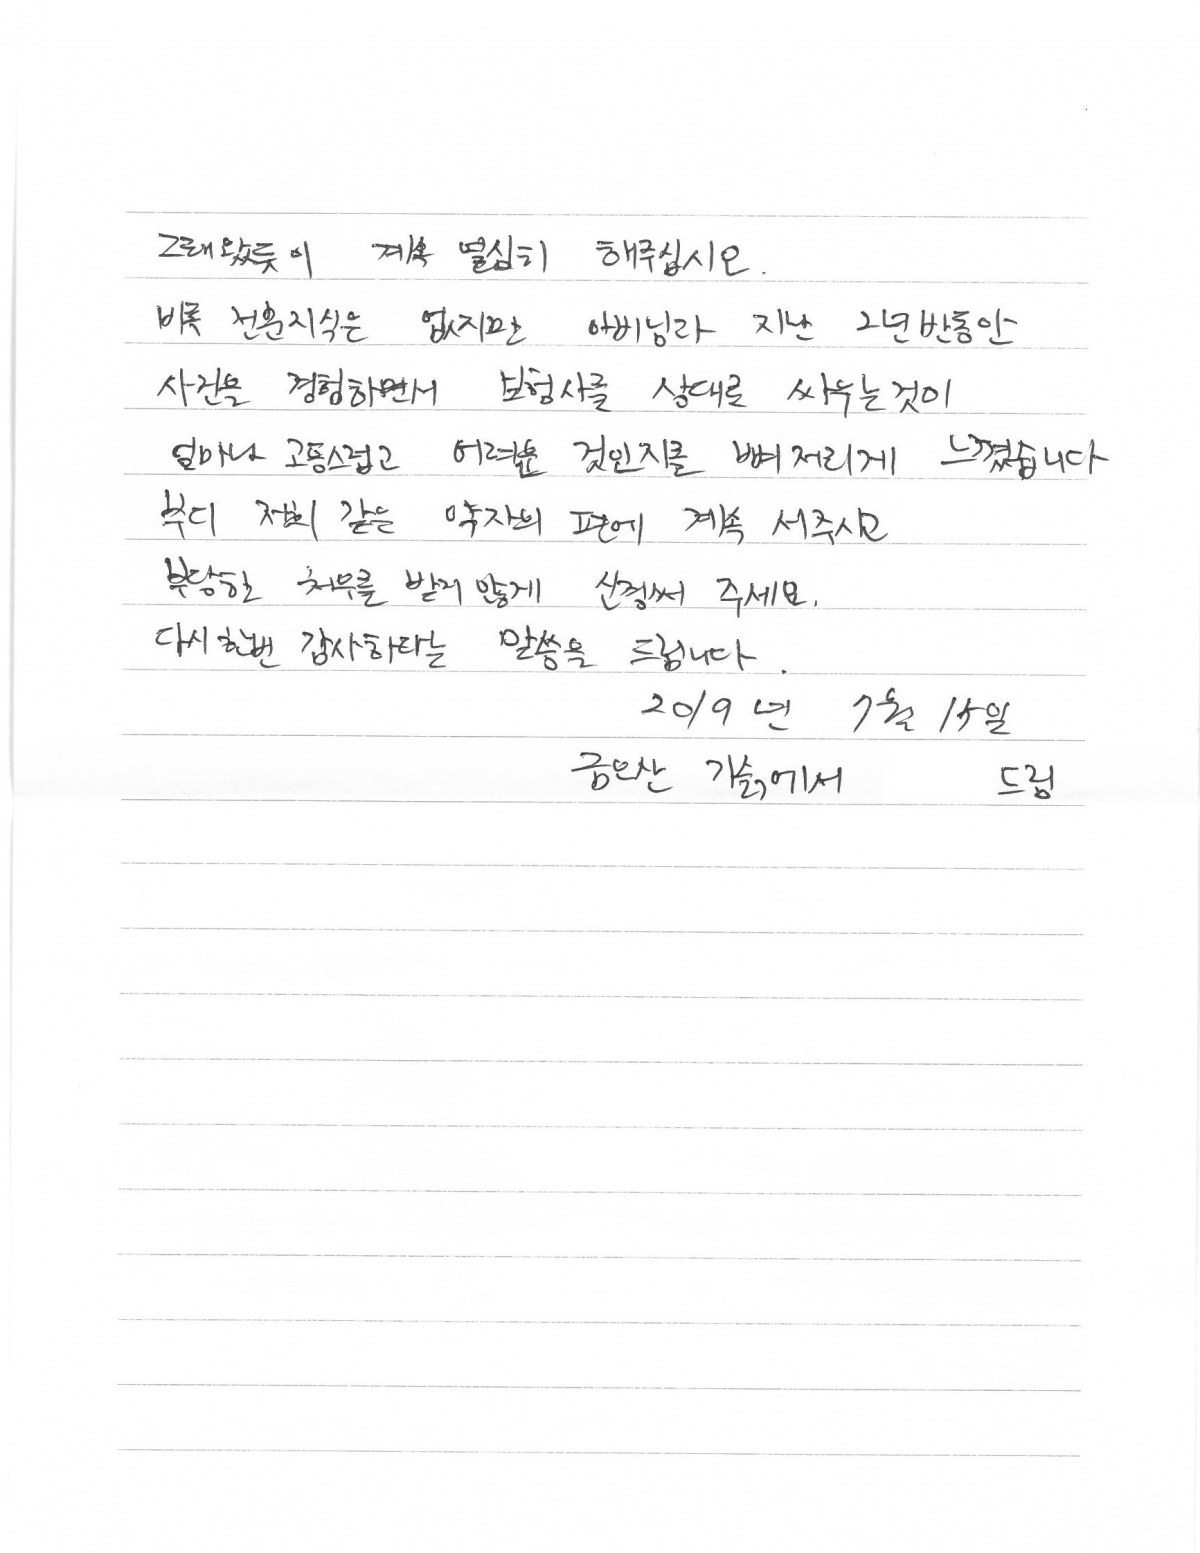 그래왔듯이 계속 열심히 해주십시오.
비록 전문지식은 없지만 아버님과 지난 2년반동안
사건을 경험하면서 보험사를 상대로 싸우는것이
얼마나 고통스럽고 어려운 것인지를 뼈저리게 느꼈습니다
부디 저희 같은 약자의 편에 계속 서주시고
부당한 처우를 받지 않게 신경써 주세요.
다시한번 감사하다는 말씀을 드립니다.
2019년 7월 15일
금오산 기슭에서 드림